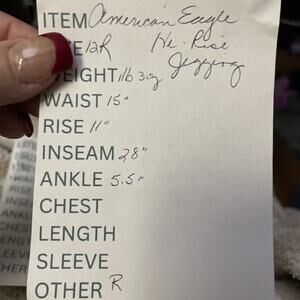 ITEM American Eagle
ZE 12R Hi-Rise
WEIGHT 1lb 3oz Jegging
WAIST 15"
RISE 11"
INSEAM 28"
ANKLE 5.5"
CHEST
LENGTH
SLEEVE
OTHER R